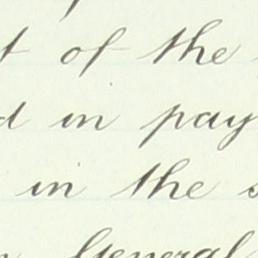 of the
in pay
in the
General